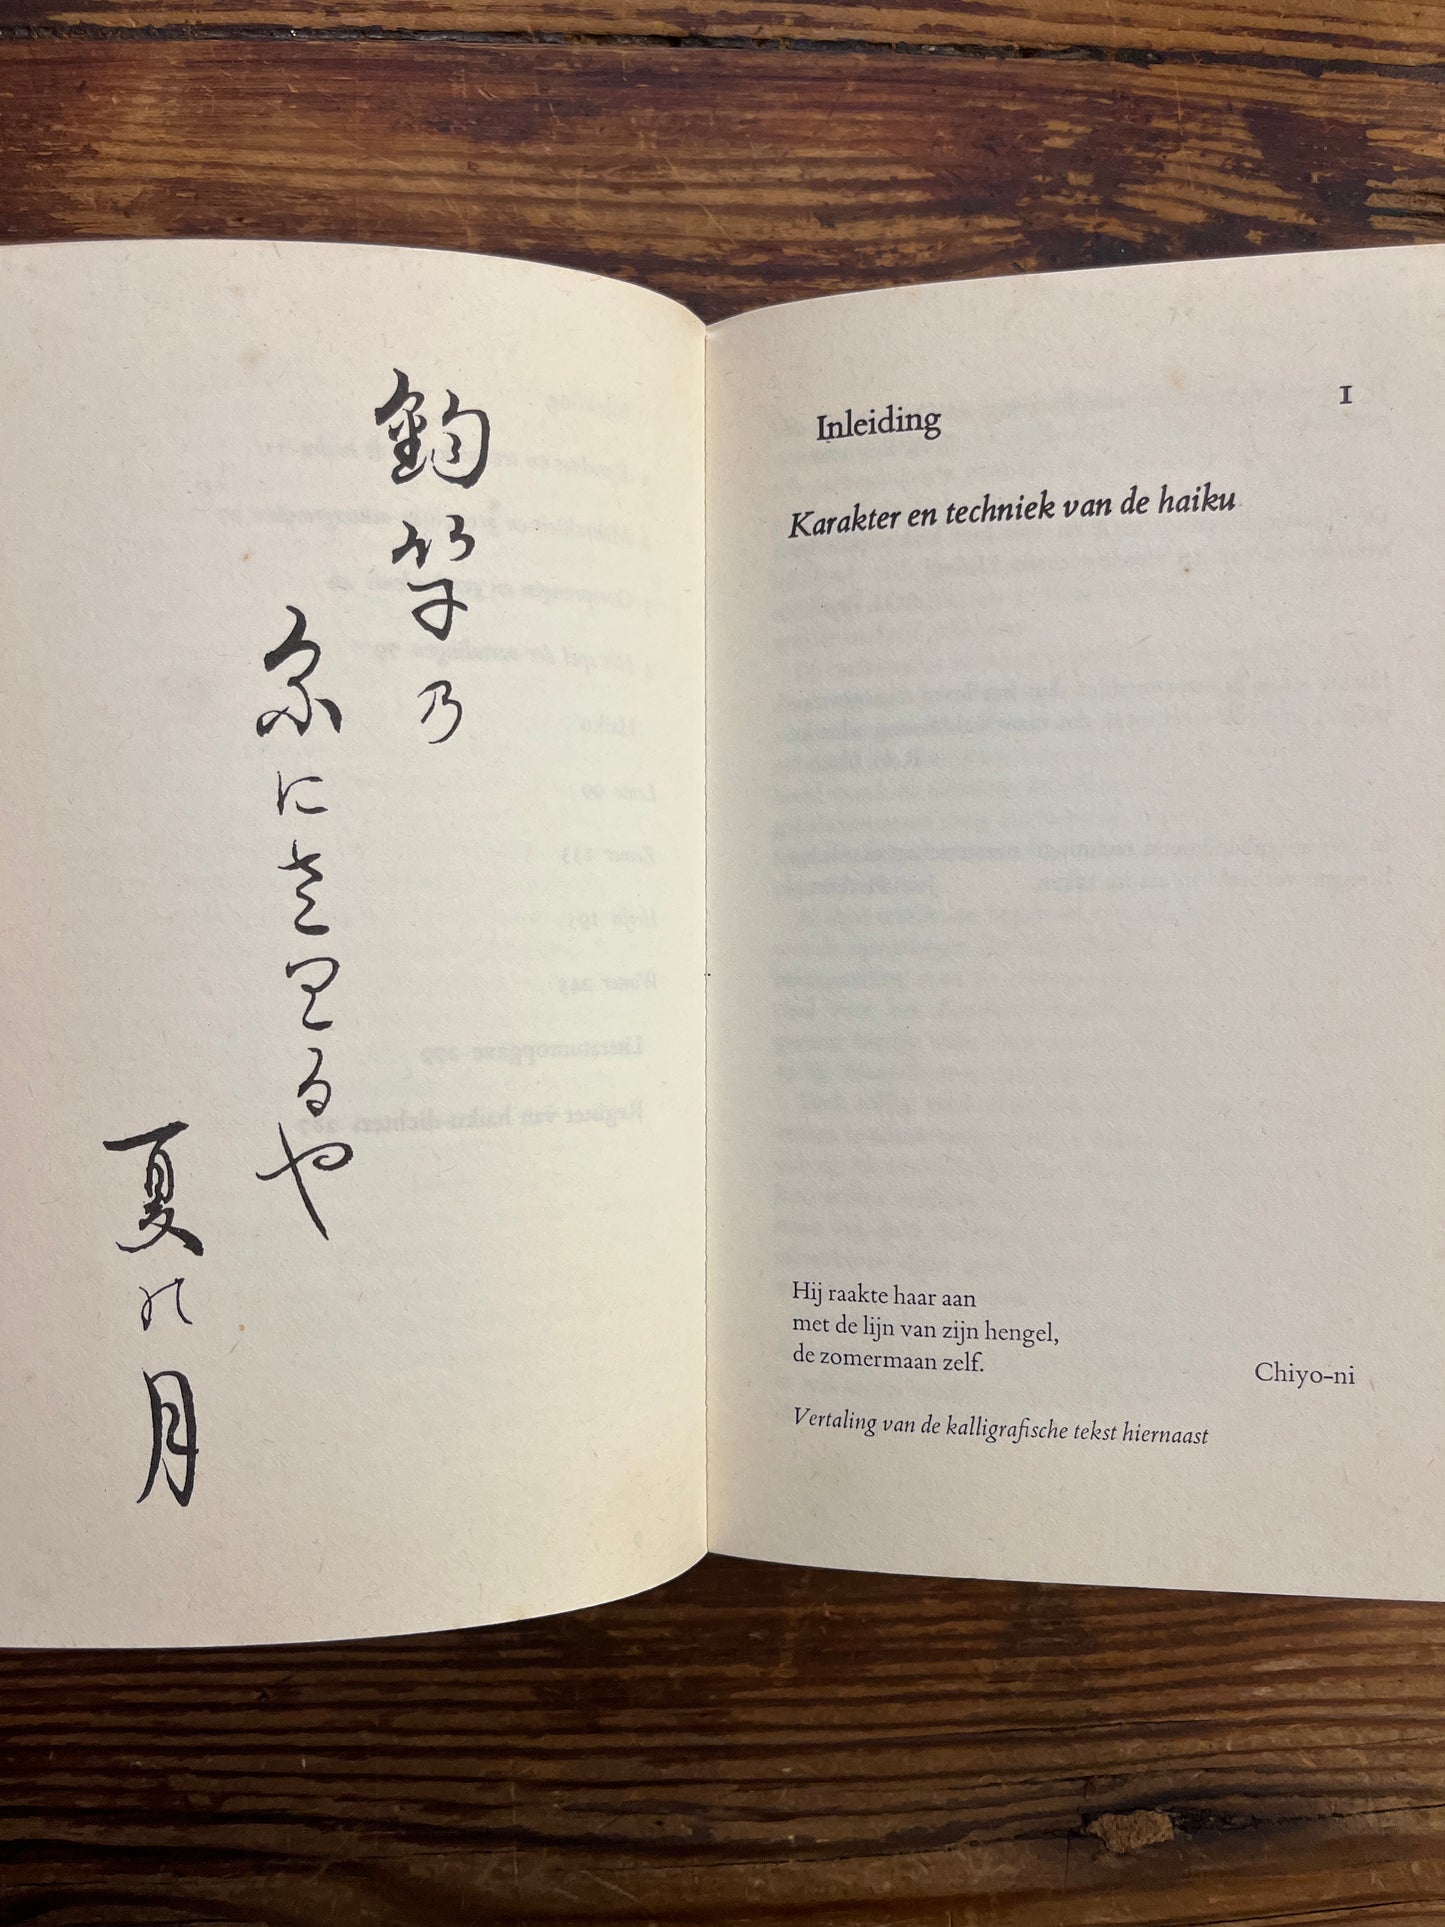 釣竿乃
糸にさはるや
夏の月
1
Inleiding
Karakter en techniek van de haiku
Hij raakte haar aan
met de lijn van zijn hengel,
de zomermaan zelf.
Chiyo-ni
Vertaling van de kalligrafische tekst hiernaast